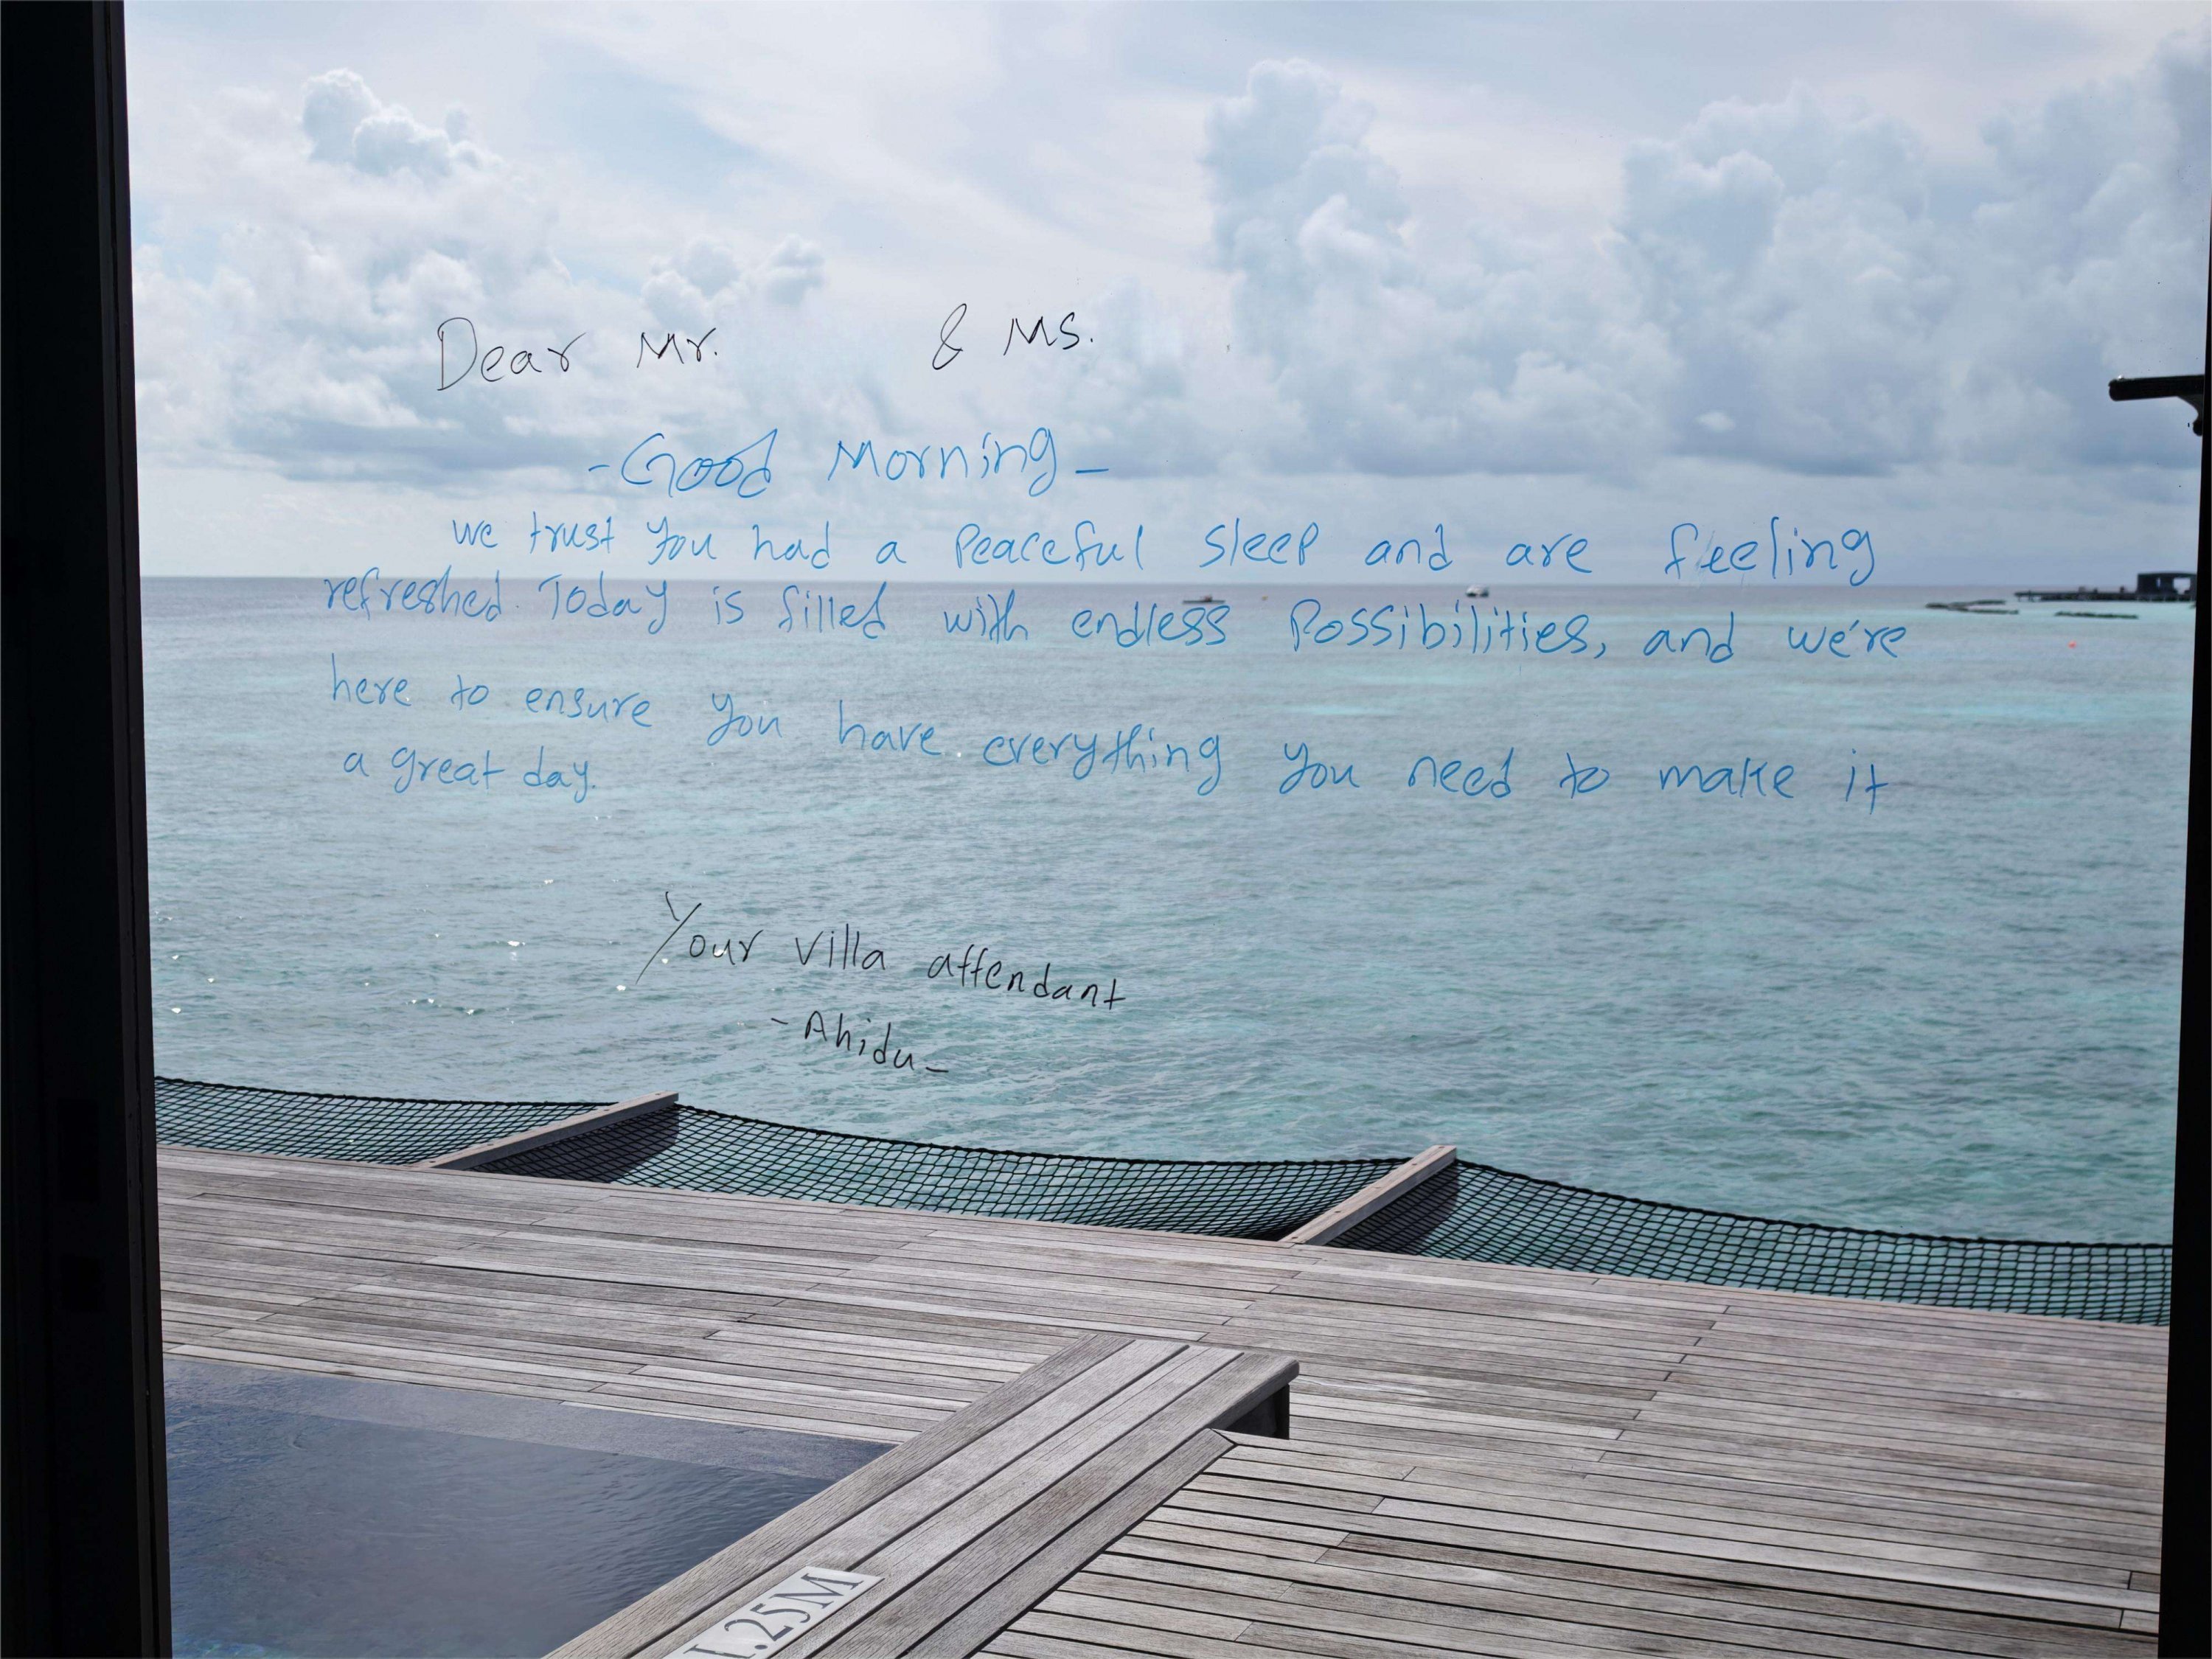 Dear Mr. & Ms.
- Good Morning -
we trust you had a Peaceful Sleep and are feeling
refreshed. Today is filled with endless Possibilities, and we're
here to ensure you have everything you need to make it
a great day.
Your villa attendant
- Ahidu -
1.25M